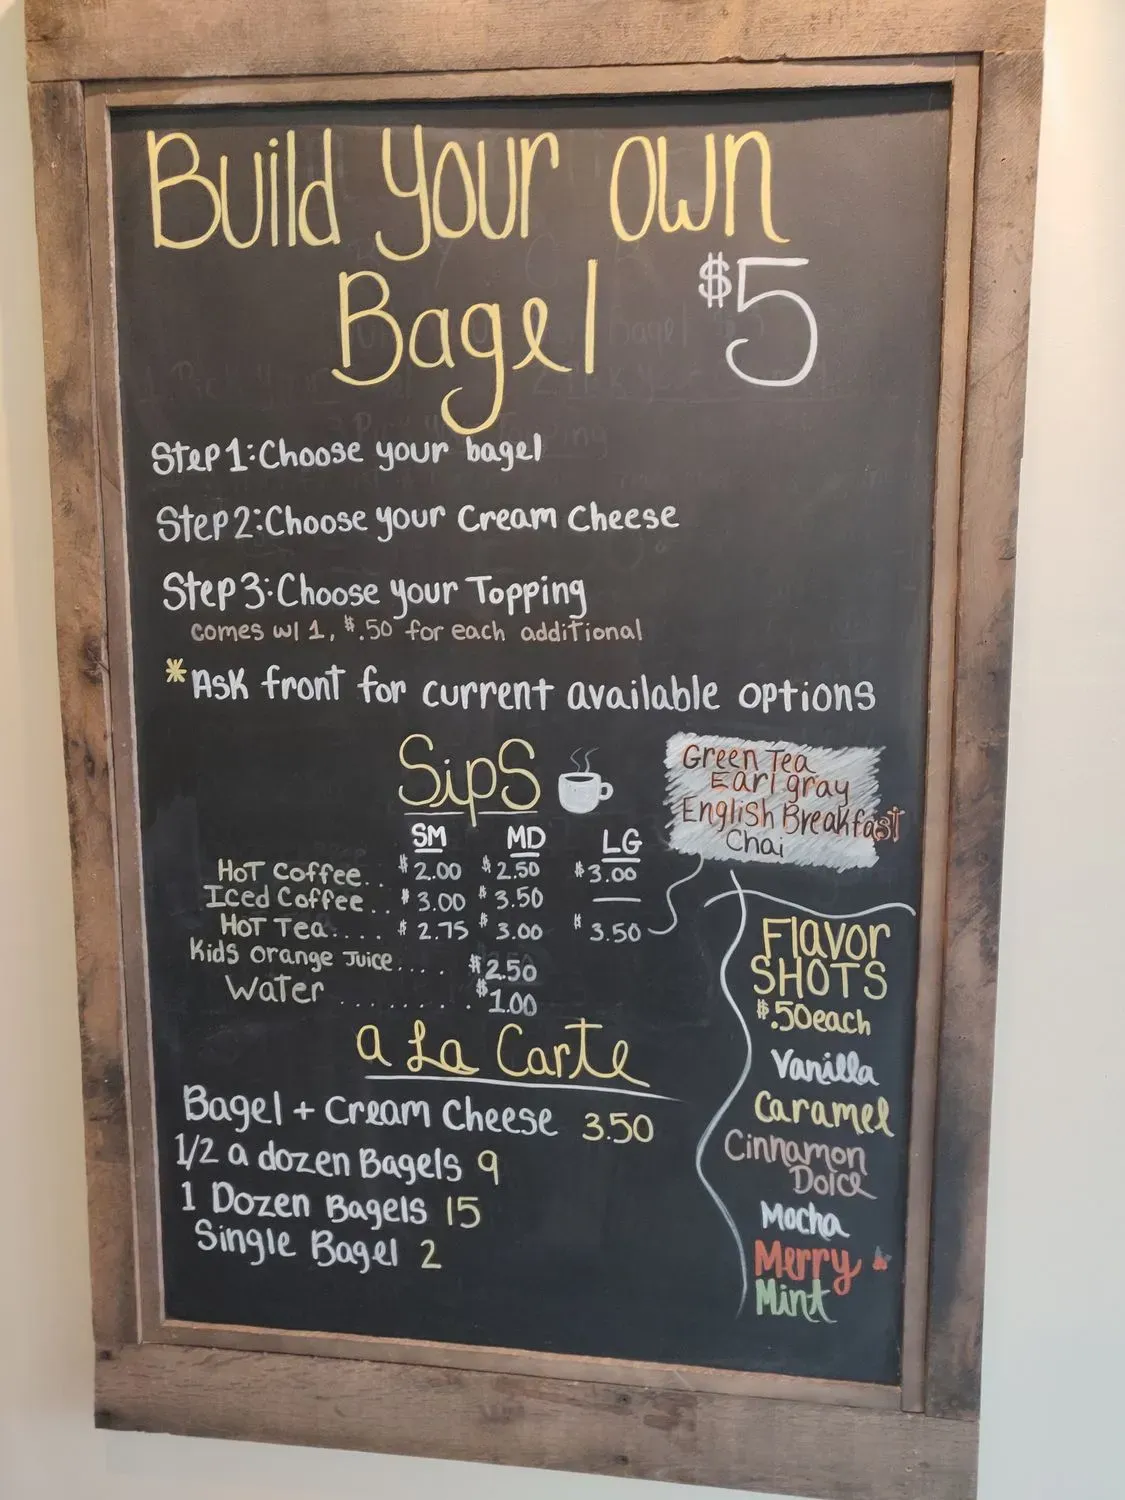 Build your own
Bagel $5
Step 1: Choose your bagel
Step 2: Choose your Cream Cheese
Step 3: Choose your Topping
comes w/ 1, $.50 for each additional
*Ask front for current available options
Sips
SM MD LG
Hot Coffee.. $2.00 $2.50 $3.00
Iced Coffee.. $3.00 $3.50 —
Hot Tea..... $2.75 $3.00 $3.50
Kids Orange Juice.... $2.50
Water ......... $1.00
Green Tea
Earl gray
English Breakfast
Chai
Flavor
SHOTS
$.50 each
Vanilla
Caramel
Cinnamon
Dolce
Mocha
Merry
Mint
a La Carte
Bagel + Cream Cheese 3.50
1/2 a dozen Bagels 9
1 Dozen Bagels 15
Single Bagel 2